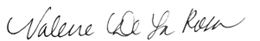 Valerie De La Rosa